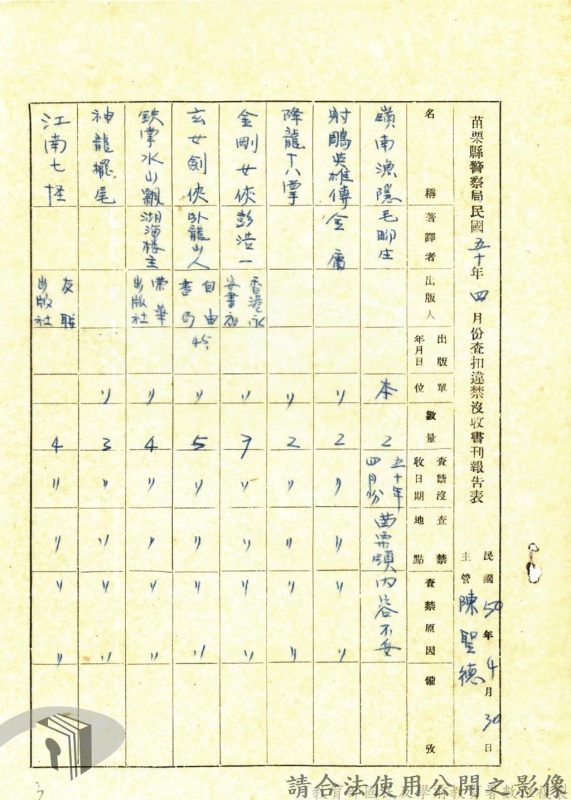 苗栗縣警察局民國五十年四月份查扣違禁沒收書刊報告表
民國50年4月30日
主管 陳聖德
名稱 著譯者 出版人 出版年月日 單位 數量 查禁沒收日期 查禁地點 查禁原因 備攷
嶺南漁隱 毛聊生 本 2 五十年四月份 苗栗頭 內容不妥
射鵰英雄傳 金庸 〃 2 〃 〃 〃 〃
降龍十八掌 〃 2 〃 〃 〃 〃
金剛女俠 彭浩一 香港永安書社 〃 7 〃 〃 〃 〃
玄女劍俠 臥龍山人 自由書局 45 〃 5 〃 〃 〃 〃
鉄掌水山飄 湖海樓主 榮華出版社 〃 4 〃 〃 〃 〃
神龍擺尾 〃 3 〃 〃 〃 〃
江南七怪 友聯出版社 4 〃 〃 〃 〃
3
請合法使用公開之影像